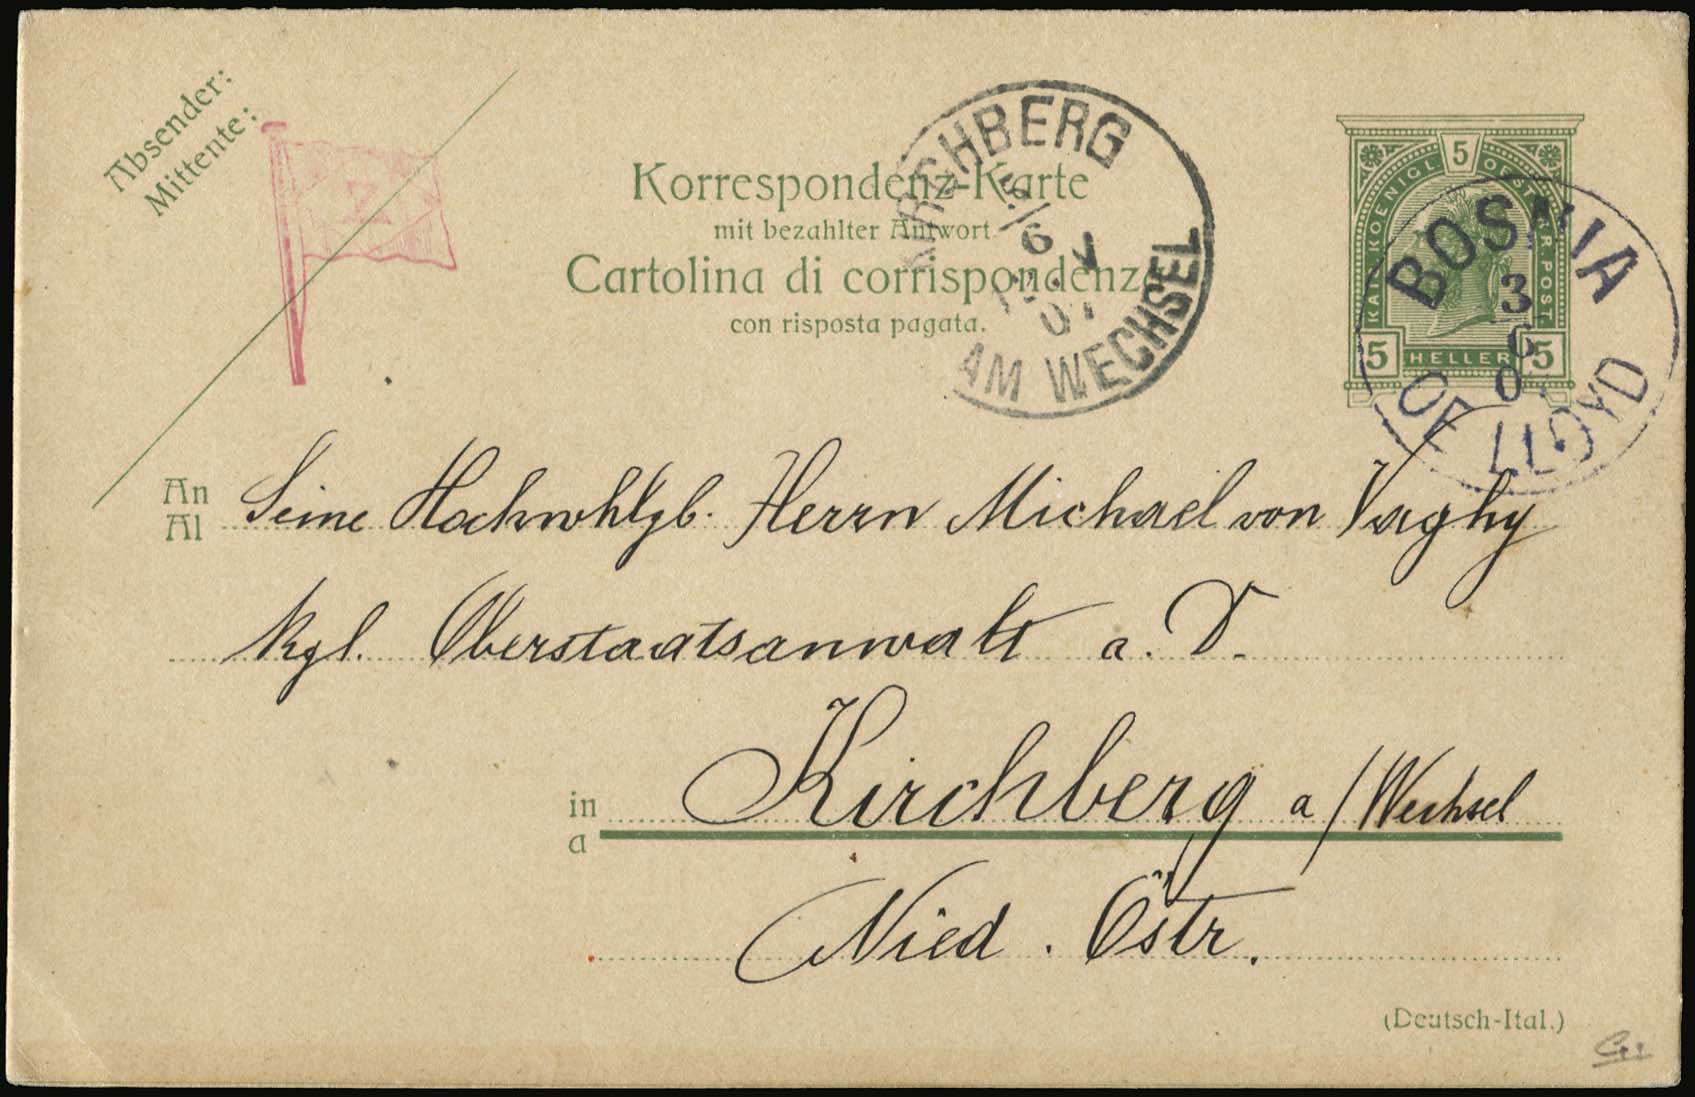 Absender:
Mittente:
Z
Korrespondenz-Karte
mit bezahlter Antwort
Cartolina di corrispondenza
con risposta pagata.
KIRCHBERG
5/
6
V
07
AM WECHSEL
KAIS. KOENIGL. OESTERR. POST.
5
5 HELLER 5
BOSNIA
3
6
0
OE LLOYD
An
Al
Seine Hochwhlgb. Herrn Michael von Vaghy
kgl. Oberstaatsanwalt a. D.
in
a
Kirchberg a/Wechsel
Nied. Östr.
(Deutsch-Ital.)